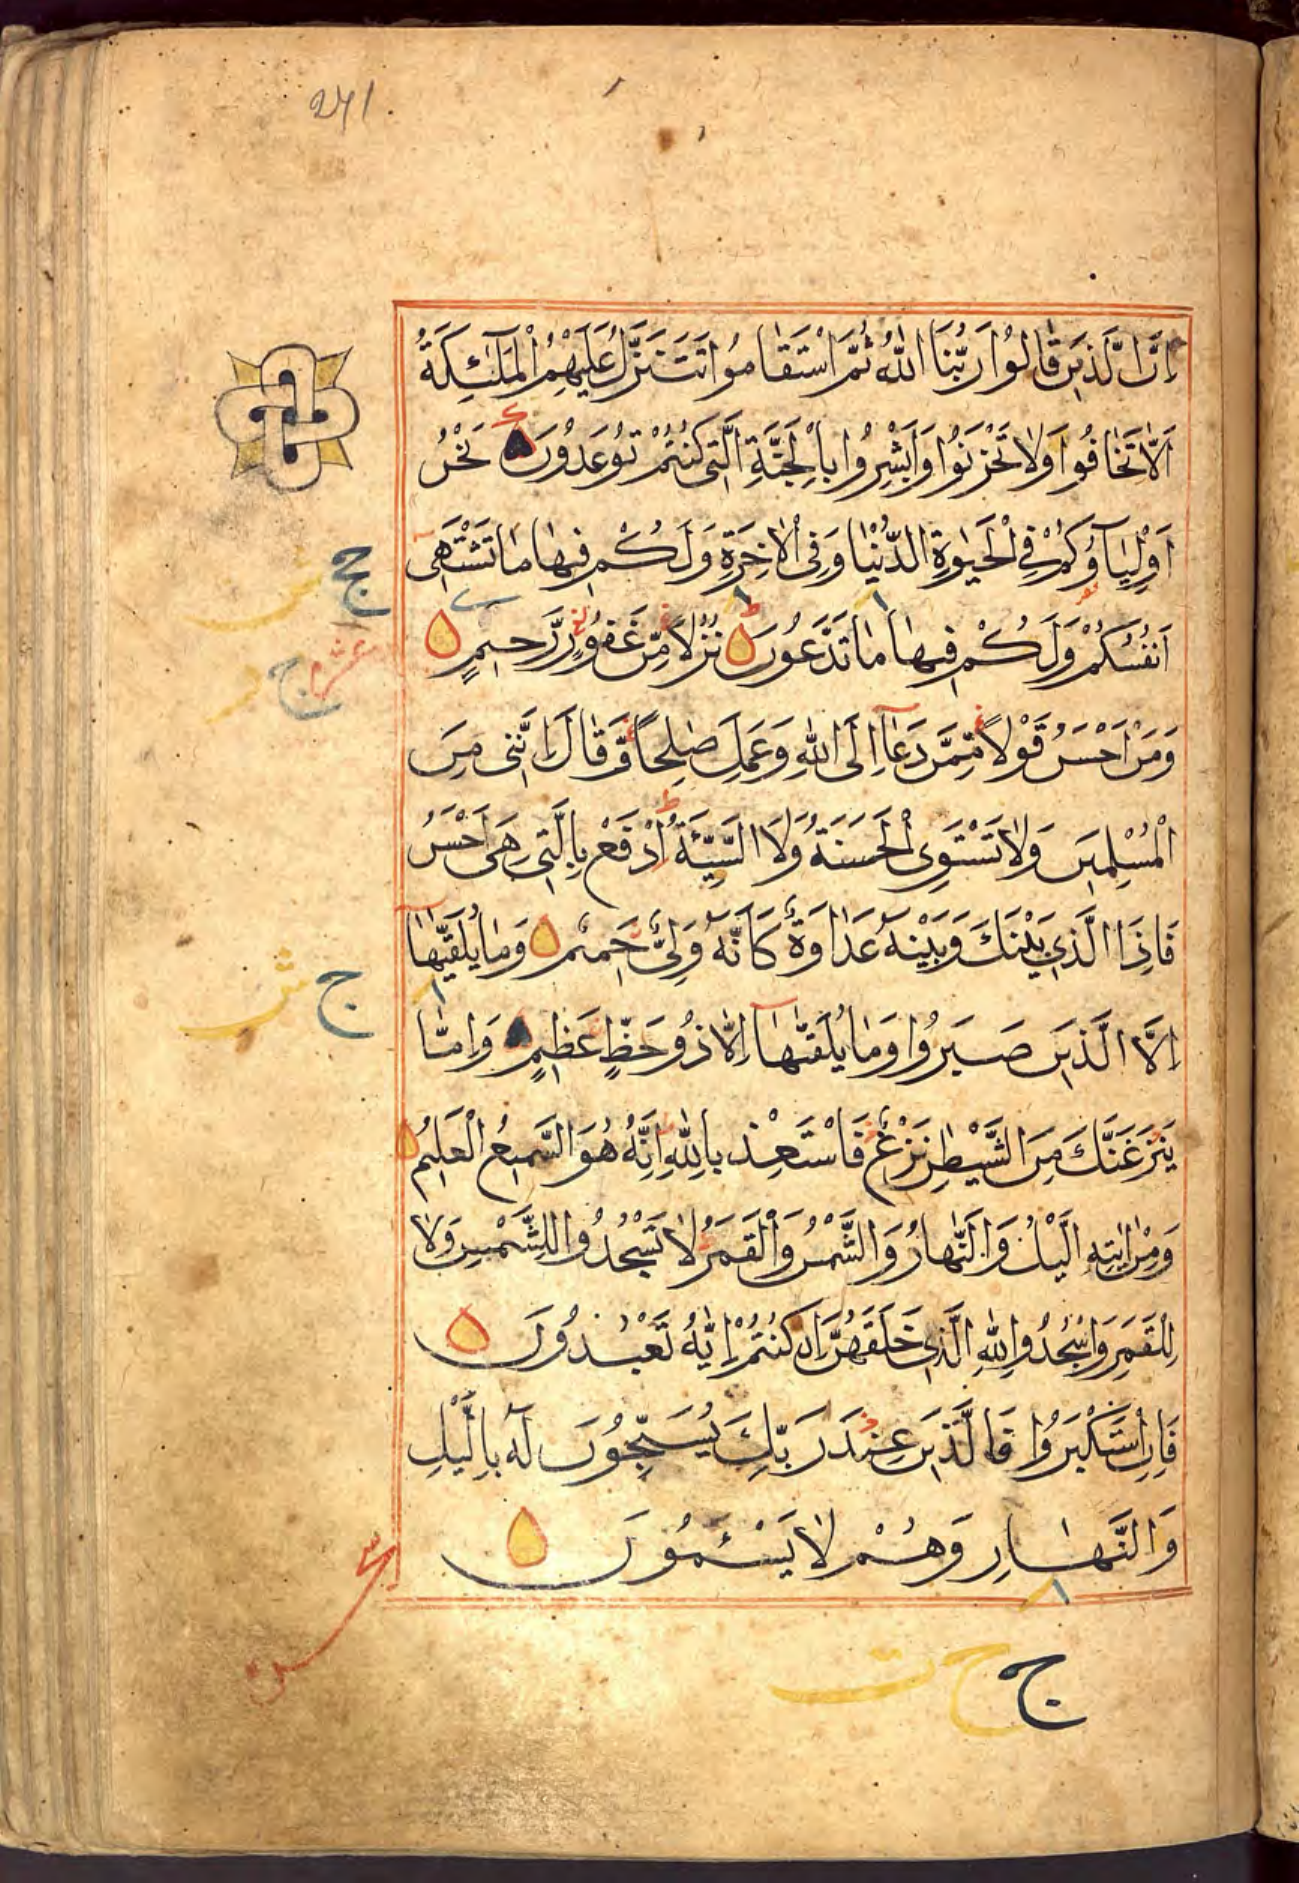 241.
اِنَّ الَّذِينَ قَالُوا رَبُّنَا اللّٰهُ ثُمَّ اسْتَقَامُوا تَتَنَزَّلُ عَلَيْهِمُ الْمَلٰٓئِكَةُ
اَلَّا تَخَافُوا وَلَا تَحْزَنُوا وَاَبْشِرُوا بِالْجَنَّةِ الَّتِي كُنْتُمْ تُوعَدُونَ نَحْنُ
اَوْلِيَآؤُكُمْ فِي الْحَيٰوةِ الدُّنْيَا وَفِي الْاٰخِرَةِ وَلَكُمْ فِيهَا مَا تَشْتَهِى
اَنْفُسُكُمْ وَلَكُمْ فِيهَا مَا تَدَّعُونَ نُزُلًا مِّنْ غَفُورٍ رَّحِيمٍ
وَمَنْ اَحْسَنُ قَوْلًا مِّمَّنْ دَعَآ اِلَى اللّٰهِ وَعَمِلَ صٰلِحًا وَّقَالَ اِنَّنِى مِنَ
الْمُسْلِمِينَ وَلَا تَسْتَوِى الْحَسَنَةُ وَلَا السَّيِّئَةُ اِدْفَعْ بِالَّتِى هِىَ اَحْسَنُ
فَاِذَا الَّذِى بَيْنَكَ وَبَيْنَهُ عَدَاوَةٌ كَاَنَّهُ وَلِىٌّ حَمِيمٌ وَمَا يُلَقّٰيهَآ
اِلَّا الَّذِينَ صَبَرُوا وَمَا يُلَقّٰىهَآ اِلَّا ذُو حَظٍّ عَظِيمٍ وَاِمَّا
يَنْزَغَنَّكَ مِنَ الشَّيْطٰنِ نَزْغٌ فَاسْتَعِذْ بِاللّٰهِ اِنَّهُ هُوَ السَّمِيعُ الْعَلِيمُ
وَمِنْ اٰيٰتِهِ الَّيْلُ وَالنَّهَارُ وَالشَّمْسُ وَالْقَمَرُ لَا تَسْجُدُوا لِلشَّمْسِ وَلَا
لِلْقَمَرِ وَاسْجُدُوا لِلّٰهِ الَّذِى خَلَقَهُنَّ اِنْ كُنْتُمْ اِيَّاهُ تَعْبُدُونَ
فَاِنِ اسْتَكْبَرُوا فَالَّذِينَ عِنْدَ رَبِّكَ يُسَبِّحُونَ لَهُ بِالَّيْلِ
وَالنَّهَارِ وَهُمْ لَا يَسْئَمُونَ